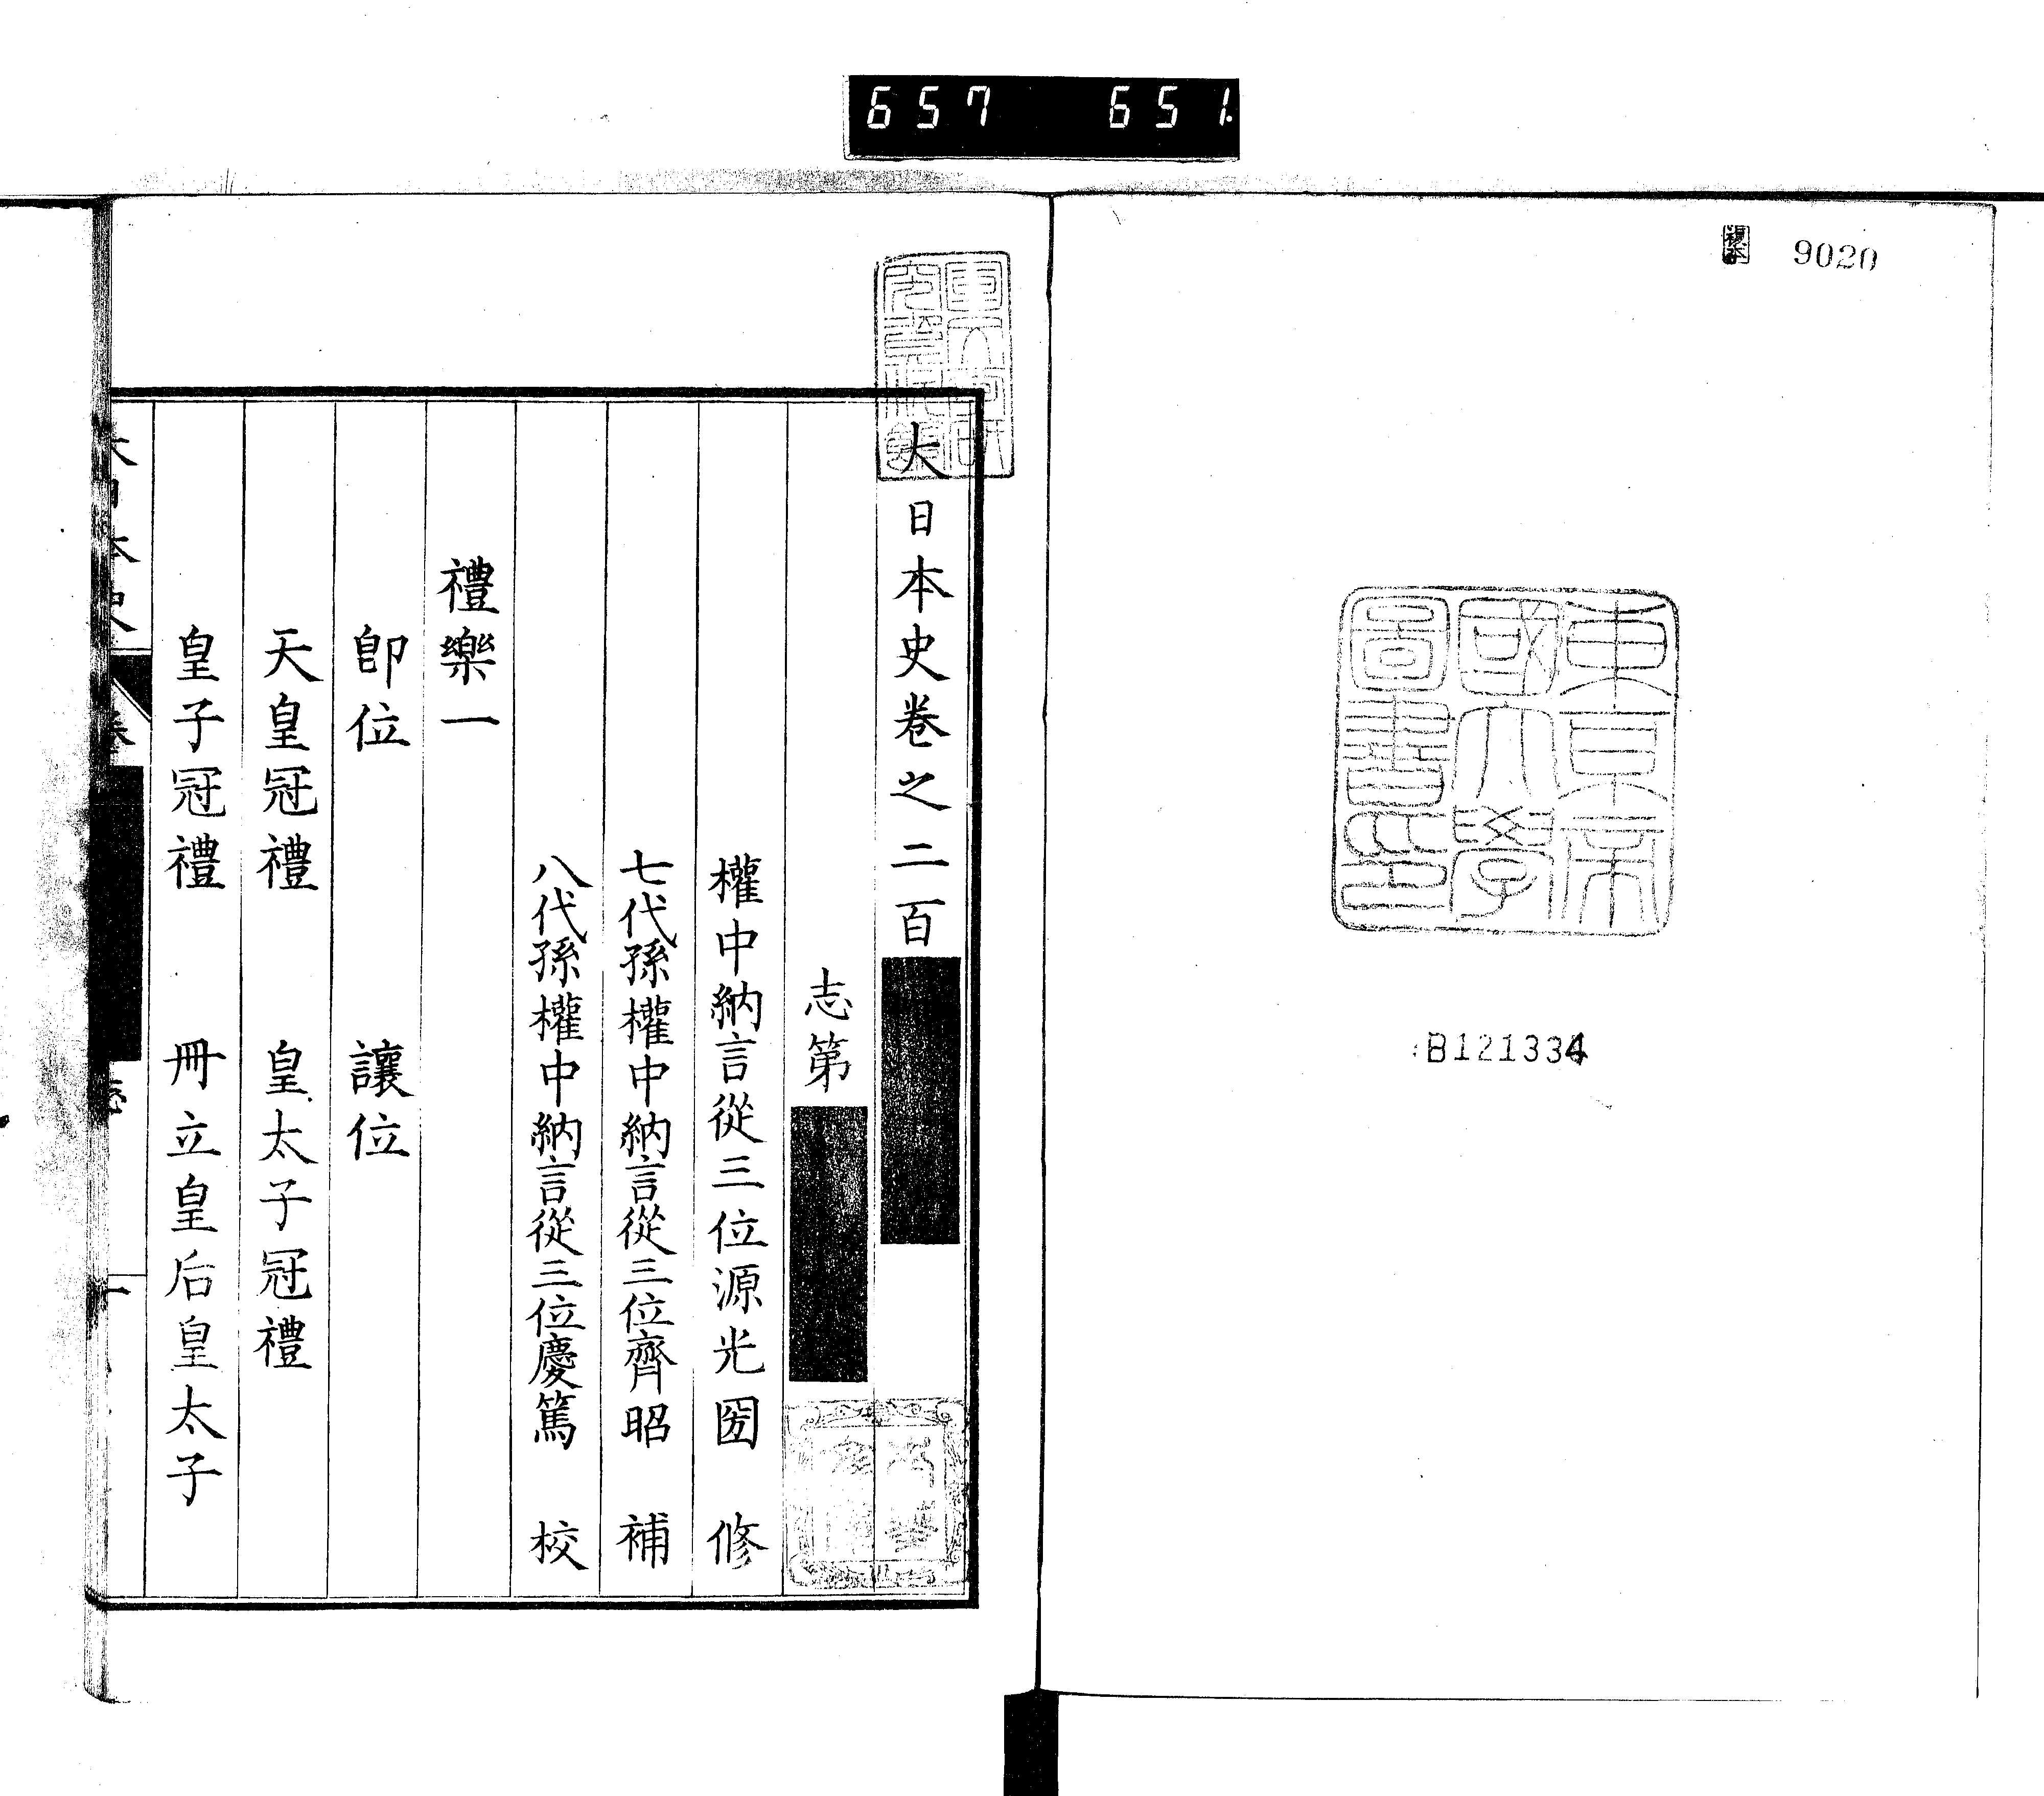 657 651.
9020
東京帝
國大學
圖書印
B121334
大日本史卷之二百
志第
權中納言從三位源光圀 修
七代孫權中納言從三位齊昭 補
八代孫權中納言從三位慶篤 校
禮樂一
卽位 讓位
天皇冠禮 皇太子冠禮
皇子冠禮 冊立皇后皇太子